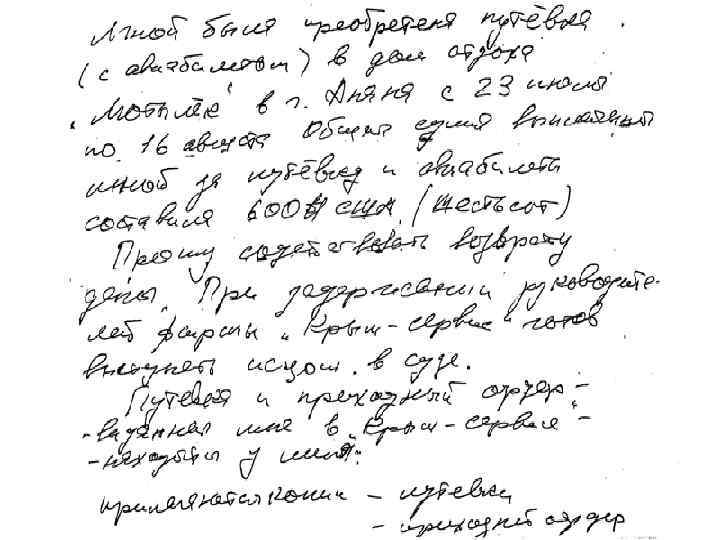 Мной была приобретена путёвка
(с авиабилетом) в дом отдыха
"Мотылёк" в г. с 23 июля
по 16 августа Общая сумма
мной за путёвку и авиабилеты
составила 600$ США (шестьсот)
Прошу содействовать возврату
При задержании руководите-
лей фирмы "Крым-сервис" готов
выступать истцом в суде.
Путёвка и приходный ордер -
- выданная мне в "Крым-сервисе" -
- находятся у меня.
Прилагаются копии - путёвки
- приходный ордер